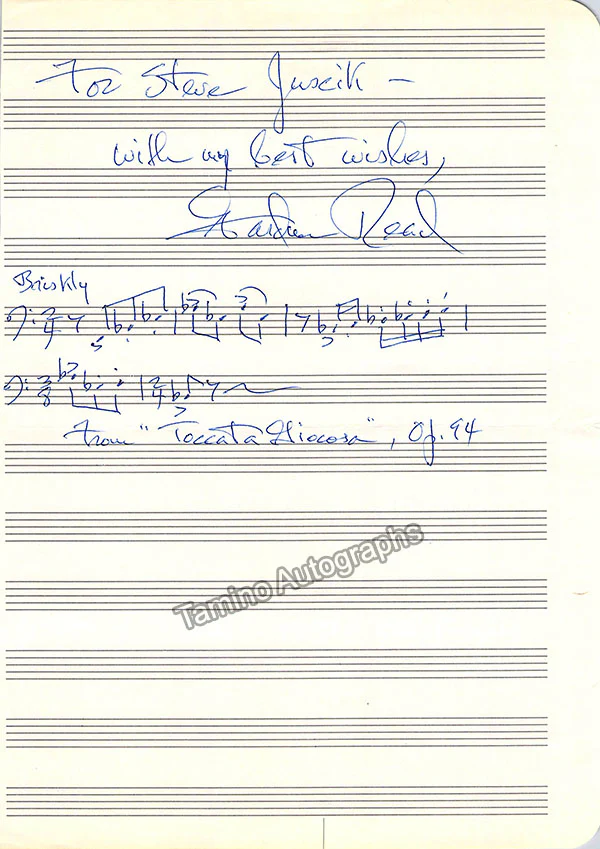 For Steve Juscik –
with my best wishes,
Gardner Read
Briskly
From "Toccata Giocosa", Op. 94
Tamino Autographs